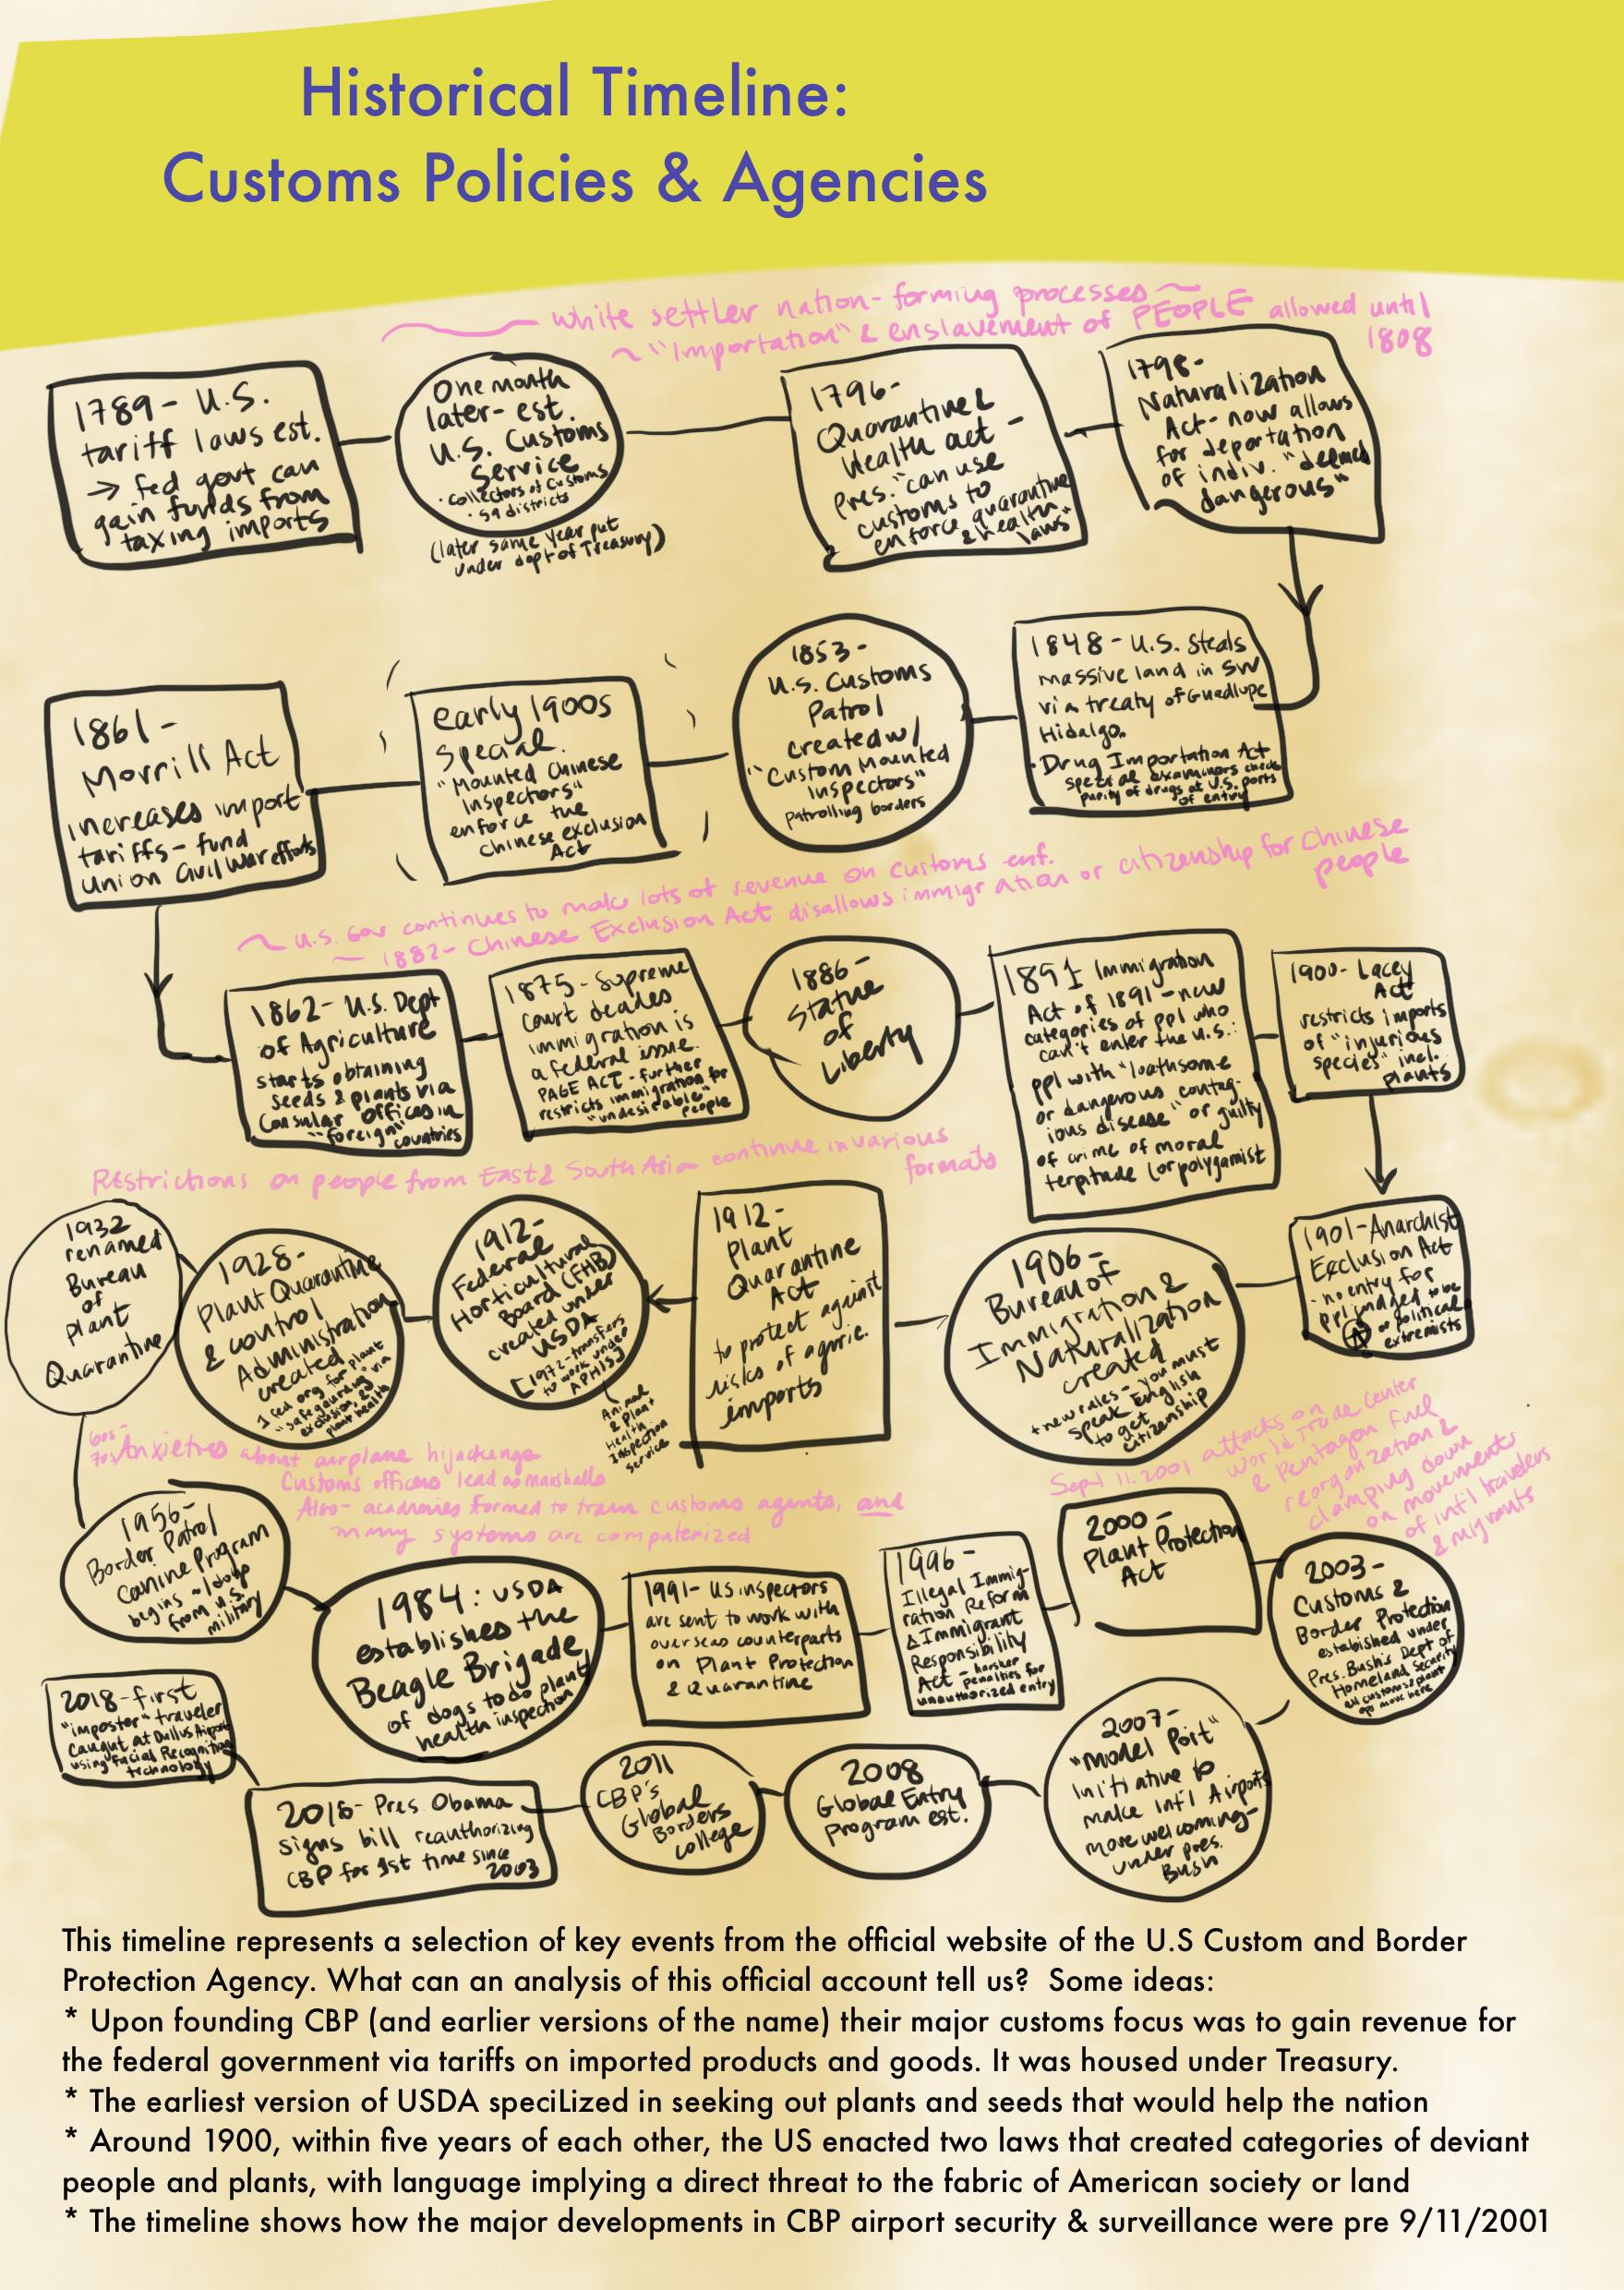 Historical Timeline:
Customs Policies & Agencies
white settler nation-forming processes
~ "Importation" & enslavement of PEOPLE allowed until
1808
1789- U.S.
tariff laws est.
→ fed govt can
gain funds from
taxing imports
One month
later- est.
U.S. Customs
Service
· Collectors of Customs
· 59 districts
(later same year put
under dept of Treasury)
1796-
Quarantine &
Health act -
Pres. "can use
customs to
enforce quarantine
& health
laws"
1798-
Naturalization
Act- now allows
for deportation
of indiv. "deemed
dangerous"
1848- U.S. Steals
massive land in SW
via treaty of Guadlupe
Hidalgo.
· Drug Importation Act
special examiners check
purity of drugs at U.S. ports
of entry
1853-
U.S. Customs
Patrol
created w/
"Custom Mounted
Inspectors"
patrolling borders
early 1900s
special
"Mounted Chinese
Inspectors"
enforce the
Chinese exclusion
Act
1861-
Morrill Act
increases import
tariffs- fund
Union Civil War efforts
~ U.S. Gov continues to make lots of revenue on Customs enf.
~ 1882- Chinese Exclusion Act disallows immigration or citizenship for Chinese
people
1862- U.S. Dept
of Agriculture
starts obtaining
seeds & plants via
Consular offices in
"foreign"
countries
1875- Supreme
Court decides
immigration is
a federal issue.
PAGE ACT- further
restricts immigration for
"undesirable"
people
1886-
Statue
of
Liberty
1891 Immigration
Act of 1891-new
categories of ppl who
can't enter the U.S.:
ppl with "loathsome
or dangerous contag-
ious disease" or guilty
of crime of moral
terpitude (or polygamist
1900- Lacey
Act
restricts imports
of "injurious
species" incl.
plants
Restrictions on people from East & South Asia continue in various
formats
1901-Anarchist
Exclusion Act
- no entry for
ppl judged to be
Ⓐ or political
extremists
1906-
Bureau of
Immigration &
Naturalization
created
+ new rules- you must
speak English
to get
citizenship
1912-
Plant
Quarantine
Act
to protect against
risks of agric.
imports
1912-
Federal
Horticultural
Board (FHB)
created under
USDA
[1972-transfers
to work under
APHIS]
Animal
& Plant
Health
Inspection
Service
1928-
Plant Quarantine
& control
Administration
created
1 fed org for plant
"safeguarding via
exclusion, &
plant health
1932
renamed
Bureau
of
Plant
Quarantine
60s-
70s Anxieties about airplane hijackings
Customs officers lead as marshalls
Also- academies formed to train customs agents, and
many systems are computerized
Sept 11, 2001 attacks on
World Trade Center
& Pentagon fuel
reorganization &
clamping down
on movements
of int'l travelers
& migrants
1956-
Border Patrol
Canine Program
begins w/ dogs
from U.S.
military
1984: USDA
establishes the
Beagle Brigade
of dogs to do plant
health inspection
1991- US inspectors
are sent to work with
overseas counterparts
on Plant Protection
& Quarantine
1996-
Illegal Immig-
ration Reform
& Immigrant
Responsibility
Act - harsher
penalties for
unauthorized entry
2000-
Plant Protection
Act
2003-
Customs &
Border Protection
estabished under
Pres. Bush's Dept of
Homeland Security
all customs
ops move here
2007-
"Model Port"
Initiative to
make int'l Airports
more welcoming-
under pres.
Bush
2008
Global Entry
Program est.
2011
CBP's
Global
Borders
College
2016- Pres. Obama
signs bill reauthorizing
CBP for 1st time since
2003
2018-first
"imposter" traveler
caught at Dullus Airport
using Facial Recognition
technology
This timeline represents a selection of key events from the official website of the U.S Custom and Border
Protection Agency. What can an analysis of this official account tell us? Some ideas:
* Upon founding CBP (and earlier versions of the name) their major customs focus was to gain revenue for
the federal government via tariffs on imported products and goods. It was housed under Treasury.
* The earliest version of USDA speciLized in seeking out plants and seeds that would help the nation
* Around 1900, within five years of each other, the US enacted two laws that created categories of deviant
people and plants, with language implying a direct threat to the fabric of American society or land
* The timeline shows how the major developments in CBP airport security & surveillance were pre 9/11/2001